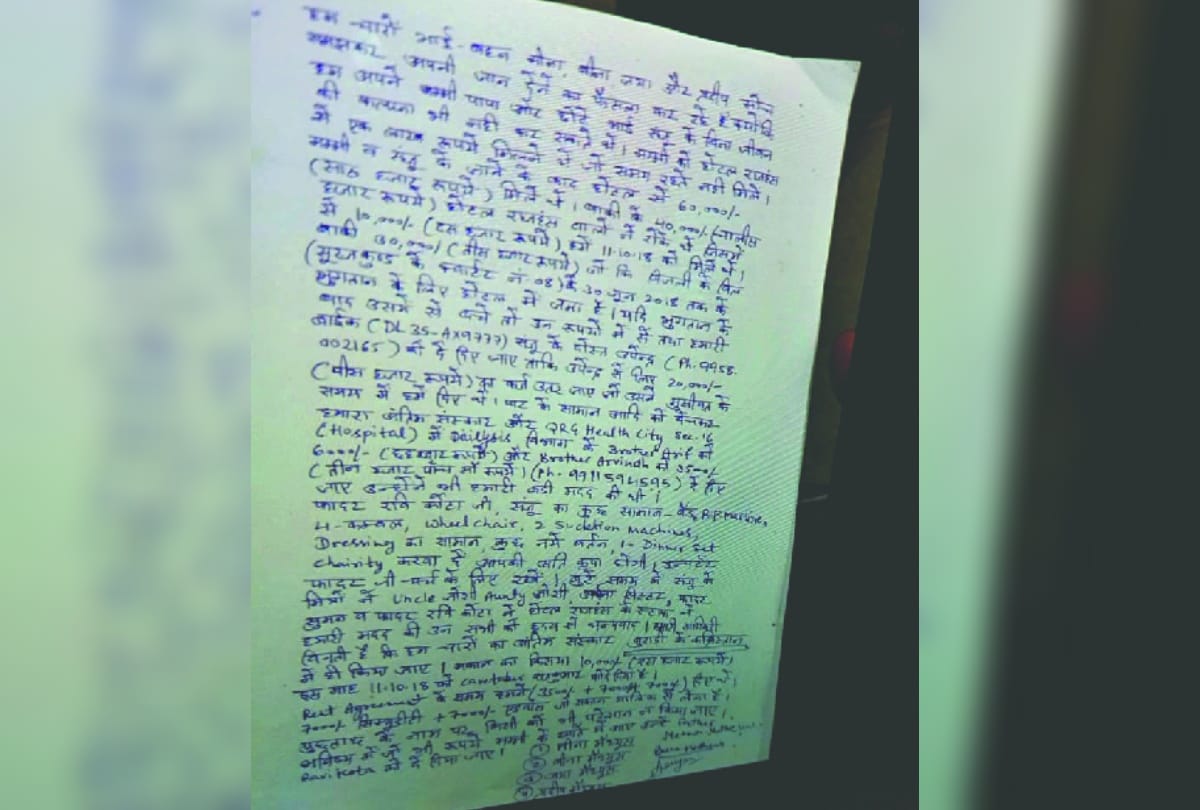 हम चारों भाई-बहन मीना, बीना जया और प्रदीप सोच
समझकर अपनी जान देने का फैसला कर रहे हैं क्योंकि
हम अपने मम्मी पापा और छोटे भाई संजू के बिना जीवन
की कल्पना भी नहीं कर सकते थे। मम्मी को होटल राजहंस
से एक लाख रूपये मिलने थे जो समय रहते नहीं मिले।
मम्मी व संजू के जाने के बाद होटल से 60,000/-
(साठ हजार रूपये) मिले थे। बाकी के 40,000/- (चालीस
हजार रूपये) होटल राजहंस वालों ने रोके थे जिसमें
से 10,000/- (दस हजार रूपये) हमें 11-10-18 को मिले थे।
बाकी 30,000/- (तीस हजार रूपये) जो कि बिजली के बिल
(सूरजकुण्ड के क्वार्टर नं-08) के 30 जून 2018 तक के
भुगतान के लिए होटल में जमा है। यदि भुगतान के
बाद उसमें से बचे तो उन रूपयों में से तथा हमारी
बाईक (DL 3S-AX9777) संजू के दोस्त उपेन्द्र (Ph. 9958-
002165) को दे दिए जाए ताकि उपेन्द्र से लिए 20,000/-
(बीस हजार रूपये) का कर्ज उतर जाए जो उसने मुसीबत के
समय में हमें दिए थे। घर के सामान आदि को बेचकर
हमारा अंतिम संस्कार और QRG Health City Sec.16
(Hospital) में Dailysis विभाग के Brother Arif को
6000/- (छह हजार रूपये) और Brother Arvindh को 3500/-
(तीन हजार पांच सौ रूपये) (Ph. 9911594595) दे दिए
जाए उन्होंने भी हमारी बड़ी मदद की थी।
फादर रवि कोटा जी, संजू का कुछ सामान - बेड, B.P. Machine,
4-कम्बल, Wheel chair, 2 Suction Machines,
Dressing का सामान, कुछ नये बर्तन, 1- Dinner Set
Chairity करवा दें आपकी अति कृपा होगी।
फादर जी चर्च के लिए रखें। बुरे समय में संजू के
मित्रों ने Uncle जोशी Aunty जोशी, सिस्टर, फादर
सुमन व फादर रवि कोटा ने होटल राजहंस के स्टाफ ने
हमारी मदद की उन सभी को हृदय से धन्यवाद। हमारी आखिरी
विनती है कि हम चारों का अंतिम संस्कार बुराड़ी के कब्रिस्तान
में ही किया जाए। मकान का किराया 10,000/- (दस हजार रूपये)
इस माह 11-10-18 को दिया है।
Rent Agreement के समय हमने (3500/- + 7000/- 7000/-) दिए थे।
7000/- सिक्यूरिटी + 7000/- एडवांस जो मकान मालिक से लेना है।
पूछताछ के नाम पर किसी को भी परेशान न किया जाए।
भविष्य में जो भी रूपये मम्मी के खाते में आए उन्हें Father
Ravi Kota को दे दिया जाए।
① मीना मैथ्यूस
② बीना मैथ्यूस
③ जया मैथ्यूस
④ प्रदीप मैथ्यूस